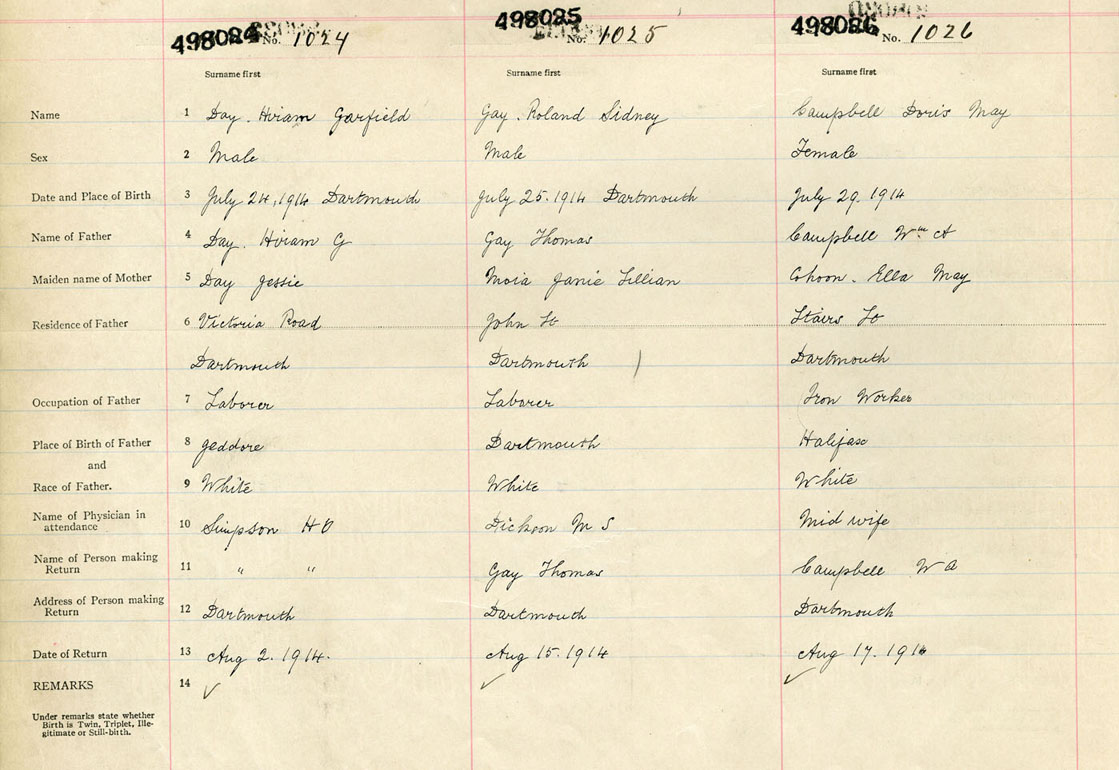 498024 498025 498026
No. 1024 No. 1025 No. 1026
Surname first Surname first Surname first
Name 1 Day. Hiram Garfield Gay. Roland Sidney Campbell Doris May
Sex 2 Male Male Female
Date and Place of Birth 3 July 24, 1914 Dartmouth July 25. 1914 Dartmouth July 29. 1914
Name of Father 4 Day. Hiram G Gay Thomas Campbell Wm A
Maiden name of Mother 5 Day Jessie Janie Lillian Cohoon. Ella May
Residence of Father 6 Victoria Road John St Stairs St
Dartmouth Dartmouth Dartmouth
Occupation of Father 7 Laborer Laborer Iron Worker
Place of Birth of Father 8 Jeddore Dartmouth Halifax
and
Race of Father. 9 White White White
Name of Physician in
attendance 10 Simpson Dickson M S Mid wife
Name of Person making
Return 11 " " Gay Thomas Campbell W A
Address of Person making
Return 12 Dartmouth Dartmouth Dartmouth
Date of Return 13 Aug 2. 1914. Aug 15. 1914 Aug 17. 1914
REMARKS 14 ✓ ✓ ✓
Under remarks state whether
Birth is Twin, Triplet, Ille-
gitimate or Still-birth.